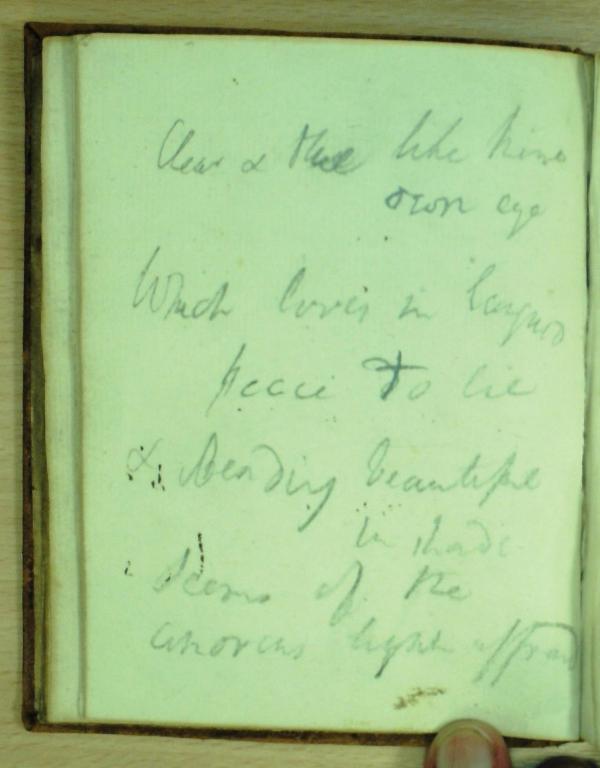 Clear & blue like thine
own eye
Which loves in languid
peace to lie
& bending beautiful
in shade
Seems of the
amorous light affraid